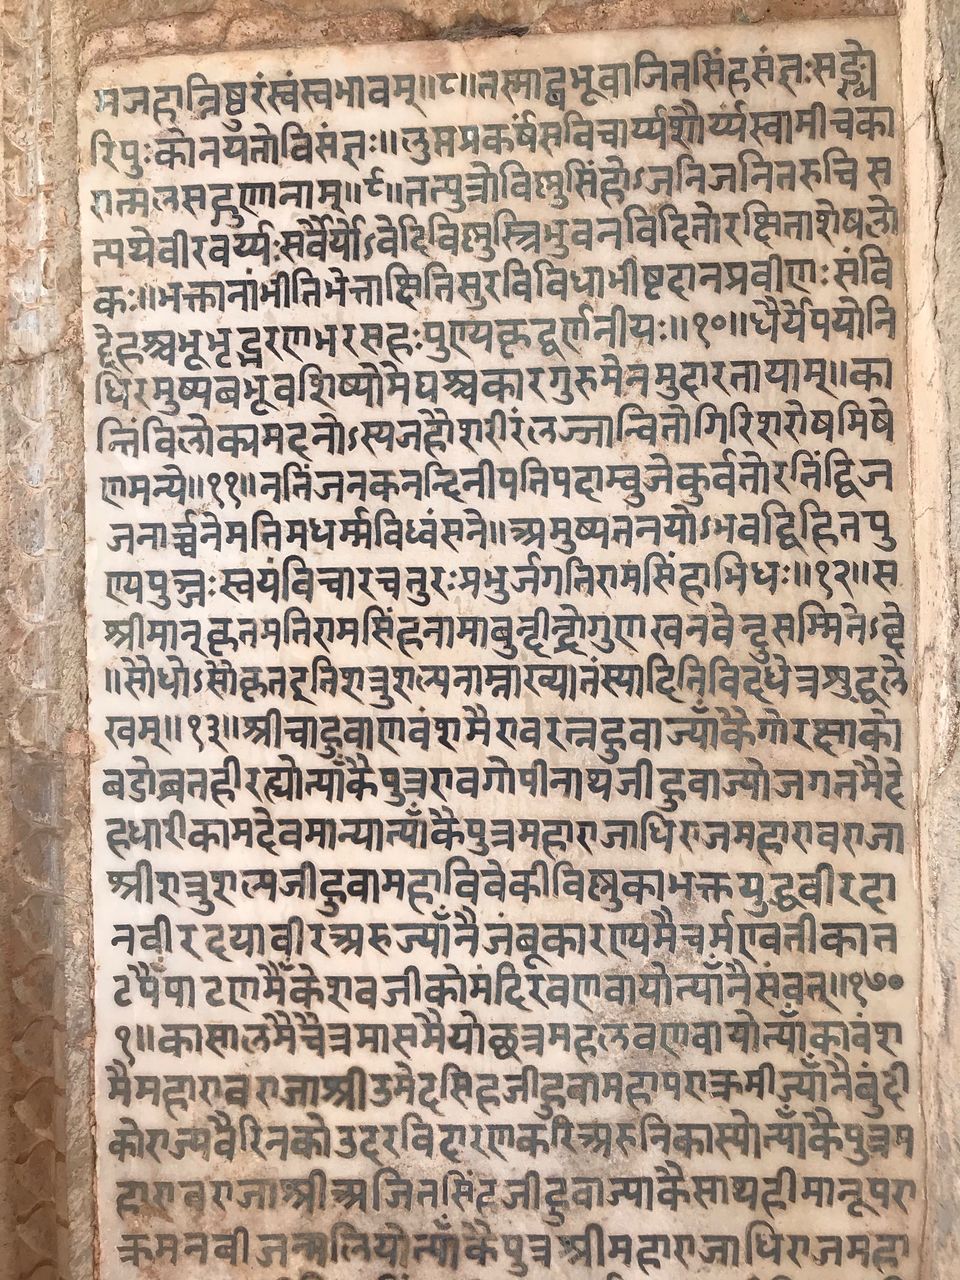 मजहान्निष्ठुरंस्वंस्वभावम्॥८॥तस्माद्बभूवाजितसिंहसंज्ञःसङ्ग्रे
रिपुःकोनयतोविसंज्ञः॥तुप्तप्रकर्षंसविचार्य्यशौर्य्यस्वामीचका
रात्मलसद्गुणानाम्॥९॥तत्पुत्रोविष्णुसिंहोऽजनिजनितरुचि स
त्पथेवीरवर्य्यःसर्वैर्योऽवेदिविष्णुस्त्रिभुवनविदितोरक्षिताशेषलो
कः॥भक्तानांभीतिभेत्ताक्षितिसुरविविधाभीष्टदानप्रवीणःसंवि
द्देहश्चभूभृद्भरणभरसहःपुण्यकृद्वर्णनीयः॥१०॥धैर्येपयोनि
धिरमुष्यबभूवशिष्योमेघश्चकारगुरुमेनमुदारतायाम्॥का
न्तिंविलोक्यमदनोऽस्यजहौशरीरंलज्जान्वितोगिरिशरोषमिषे
णमन्ये॥११॥नतिंजनकनन्दिनीपतिपदाम्बुजेकुर्वतोरतिंद्विज
जनार्च्चनेमतिमधर्म्मविध्वंसने॥अमुष्यतनयोऽभवद्विहितपु
ण्यपुञ्जःस्वयंविचारचतुरःप्रभुर्जगतिरामसिंहाभिधः॥१२॥स
श्रीमान्कृतमतिरामसिंहनामाबुन्दीन्द्रोगुणखनवेन्दुसम्मितेऽब्दे
॥सौधोऽसौकृतइतिशत्रुशल्यनाम्नाख्यातंस्यादितिविदधेत्रशुद्धले
खम्॥१३॥श्रीचाहुवाणवंशमैरावरत्नहुवाज्याँकैगोरक्षाको
बडोब्रतहीरह्योत्याँकैपुत्ररावगोपीनाथजीहुवाज्योजगतमैदे
हधारीकामदेवमान्यात्याँकैपुत्रमहाराजाधिराजमहारावराजा
श्रीशत्रुशल्यजीहुवामहाविवेकीविष्णुकाभक्तयुद्धवीरदा
नवीरदयावीरअरुज्याँनैजंबूकारण्यमैचर्मण्वतीकात
टपैपाटणमैँकेशवजीकोमंदिरवणवायोत्याँनैसंवत्॥१७०
१॥कासालमैचैत्रमासमैयोछत्रमहलवणवायोत्याँकावंश
मैमहारावराजाश्रीउमेदसिंहजीहुवामहापराक्रमीज्याँनैबुंदी
कोराज्यवैरिनकोउदरविदारणकरिअरुनिकास्योत्याँकैपुत्रम
हारावराजाश्रीअजितसिंहजीहुवाज्याकैसाथहीमानूपरा
क्रमनवीजन्मलियोत्याँकैपुत्रश्रीमहाराजाधिराजमहा